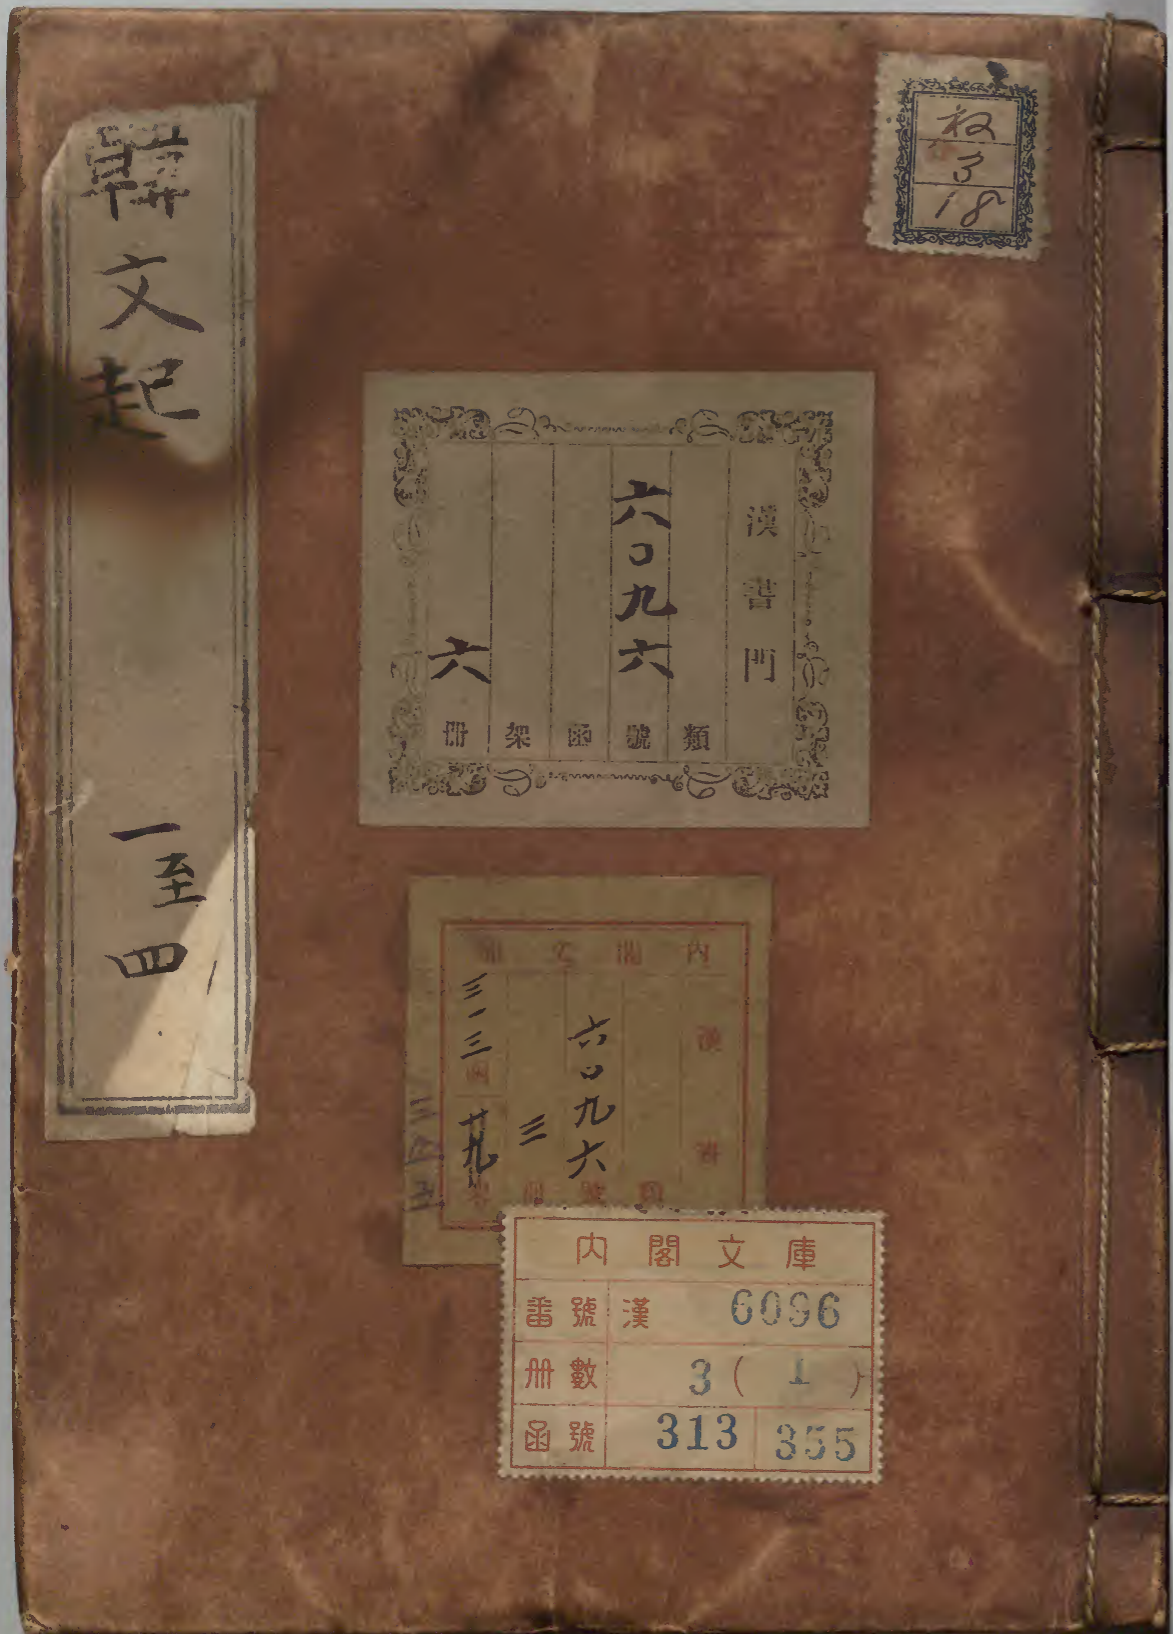 韓文起
一至四
3
18
漢書門
類
六〇九六號
函
架
六冊
內閣文庫
漢書
類
六〇九六號
三冊
三一三函
廿九架
內閣文庫
番號 漢 6096
冊數 3(1)
函號 313 355